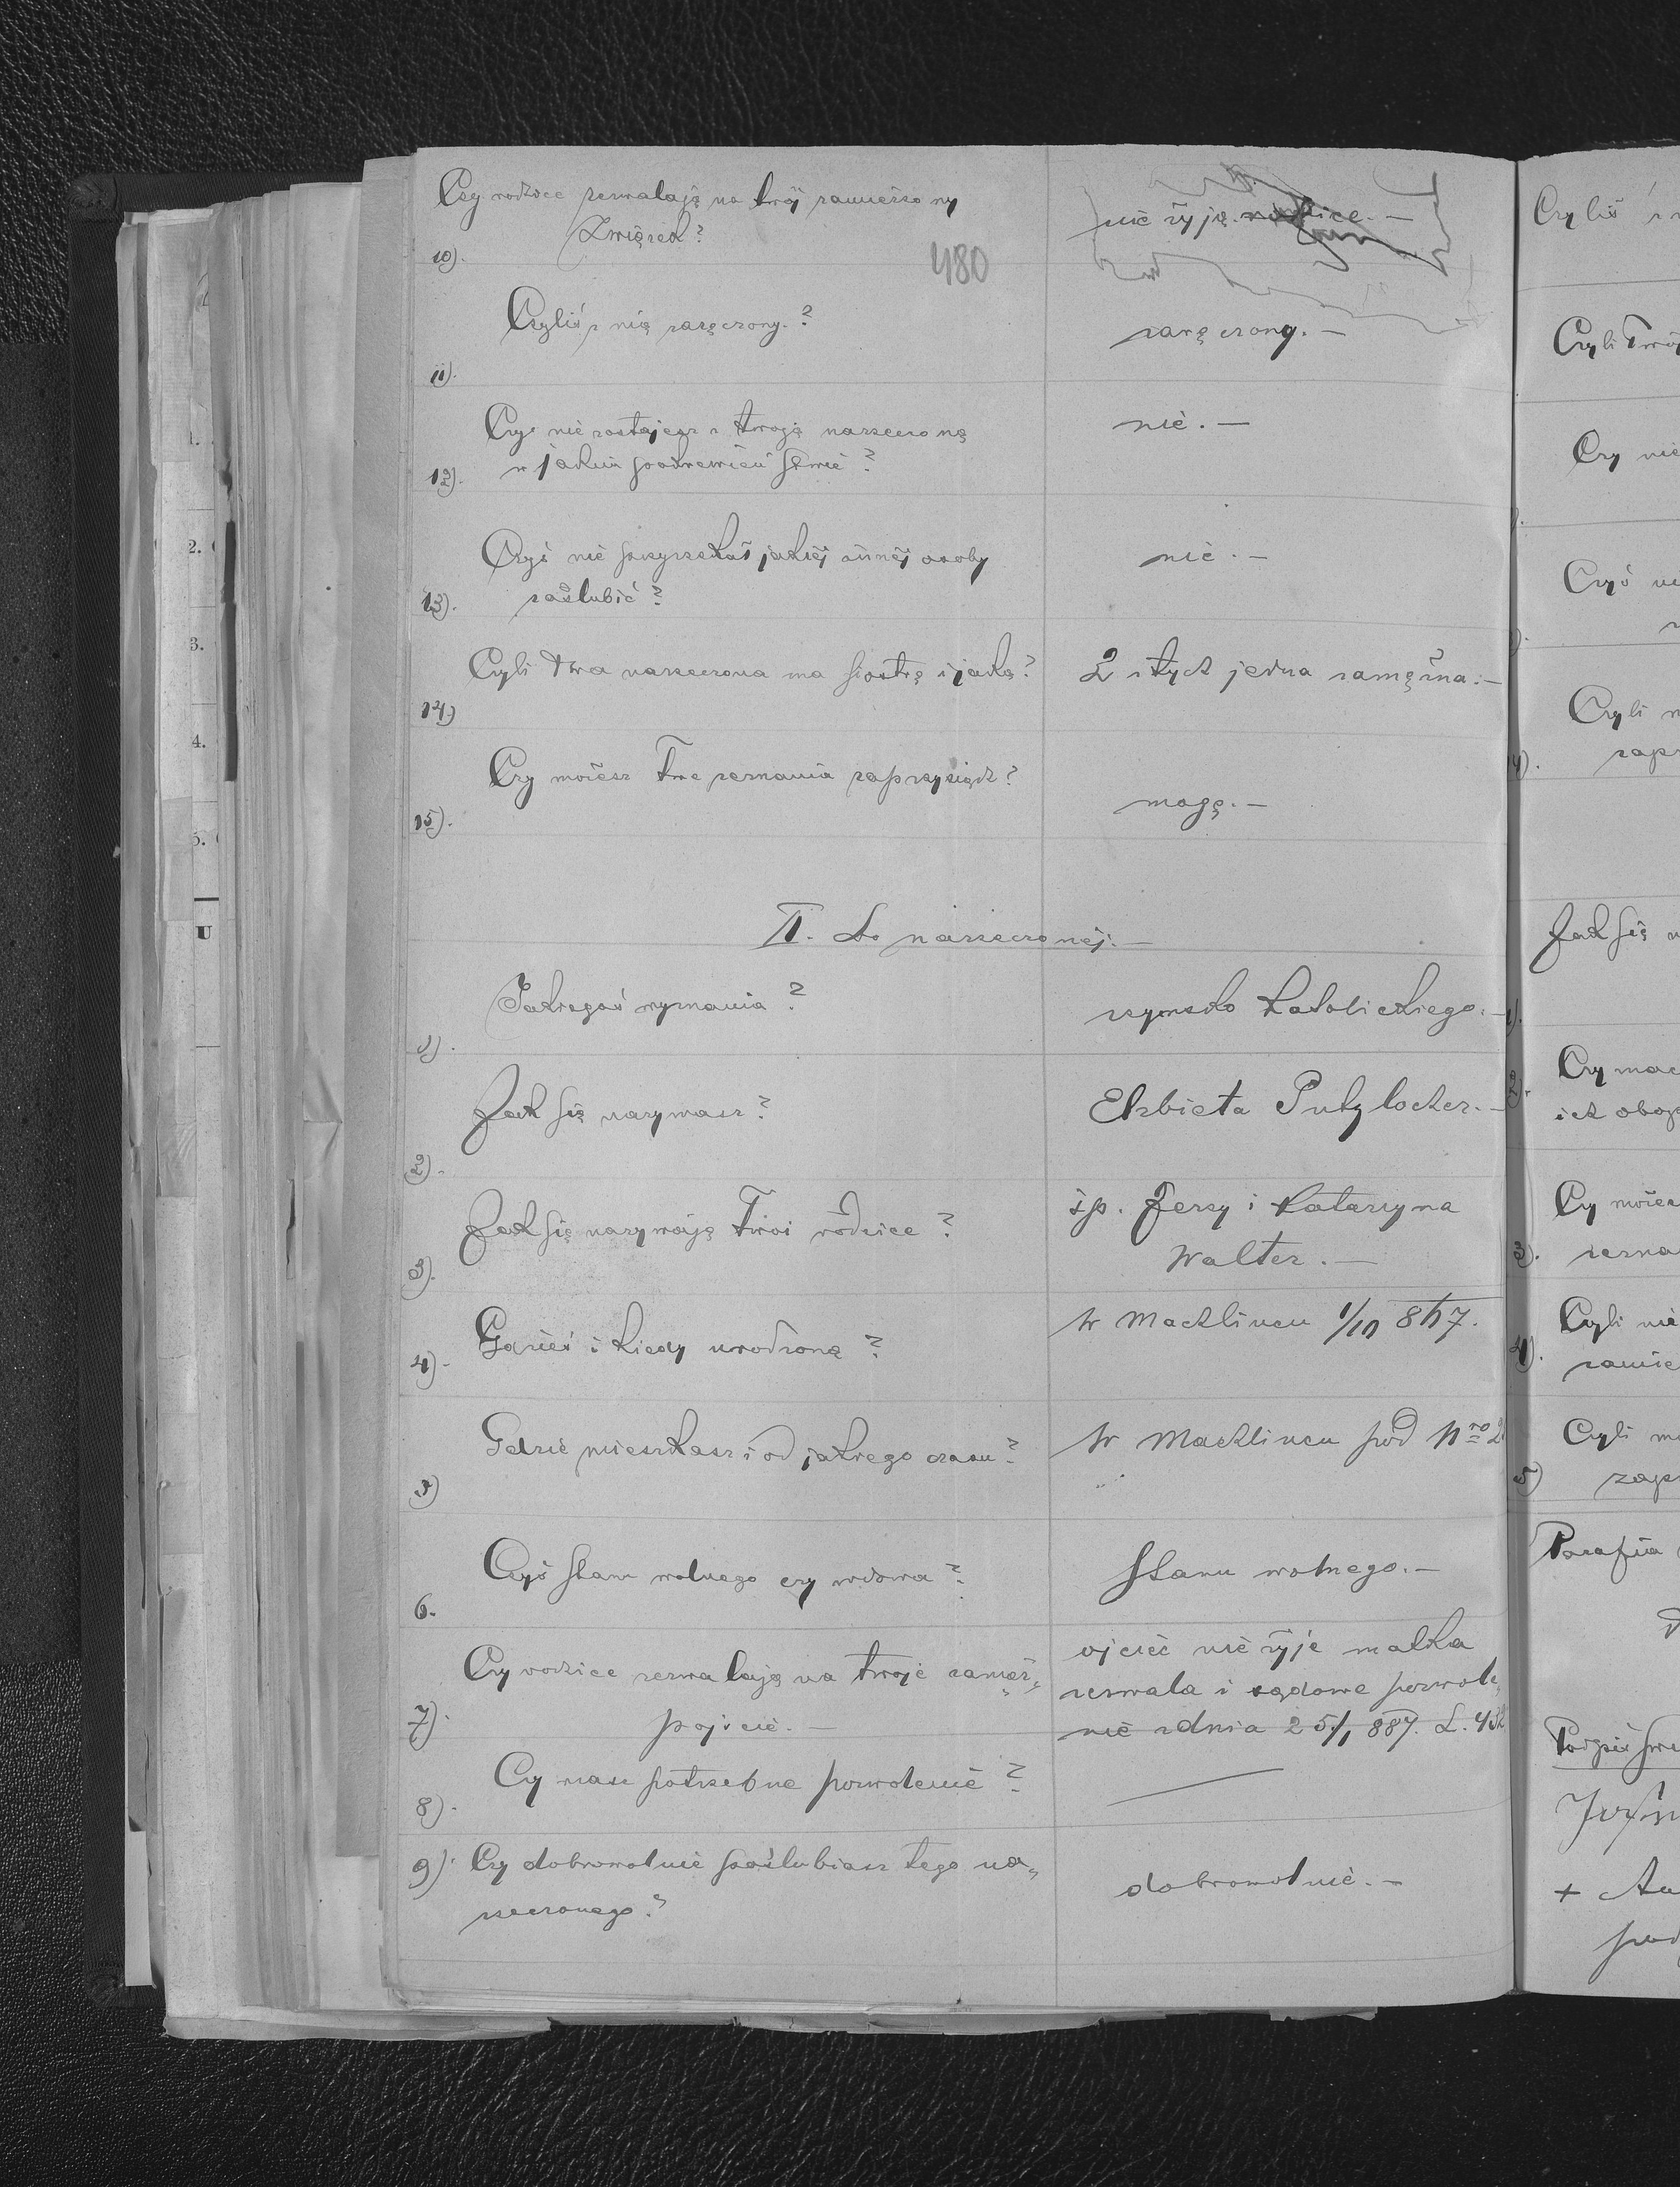 Czy rodzice zezwalają na twój zamierzony
Związek?
10).
nie żyją rodzice. —
480
Czyliś z nią zaręczony?
11).
zaręczony. —
Czy nie zostajesz z twoją narzeczoną
w jakim spokrewień stwie?
12).
nie. —
Czyś nie przyrzekał jakiej innej osoby
zaślubić?
13).
nie. —
Czyli twa narzeczona ma siostrę i jaką?
14.)
2 i tych jedna zamężna. —
Czy możesz Twe zeznania zaprzysiądz?
15).
mogę. —
II. Do narzeczonej. —
Jakiegoś wyznania?
1).
rzymsko katolickiego. —
Jak się nazywasz?
2).
Elzbieta Putzlocher. —
Jak się nazywają Twoi rodzice?
3).
śp. Jerzy i Katarzyna
Walter. —
Gdzieś i kiedy urodzoną?
4).
w Machlincu 1/10 867.
Gdzie mieszkasz i od jakiego czasu?
5)
w Machlincu pod Nro 2
Czyś stanu wolnego czy wdowa?
6.
Stanu wolnego. —
Czy rodzice zezwalają na twoje zamęż„
pojście. —
7).
ojciec nie żyje matka
zezwala i sądowe pozwole„
nie z dnia 25/1 887. L. 452
Czy masz potrzebne pozwolenie?
8).
9). Czy dobrowolnie poślubiasz tego na„
rzeczonego?
dobrowolnie. —
Czyliś z
Czyli Twój
Czy nie
Czyś ni
Czyli m
zapr
Jak się n
1).
Czy mac
2.
ich obop
Czy może
3). zezna
Czyli nie
4). zamie
Czyli ma
5) zapr
Parafia
Podpis świ
Józef
+ An
pod
1.
2.
3.
4.
5.
U